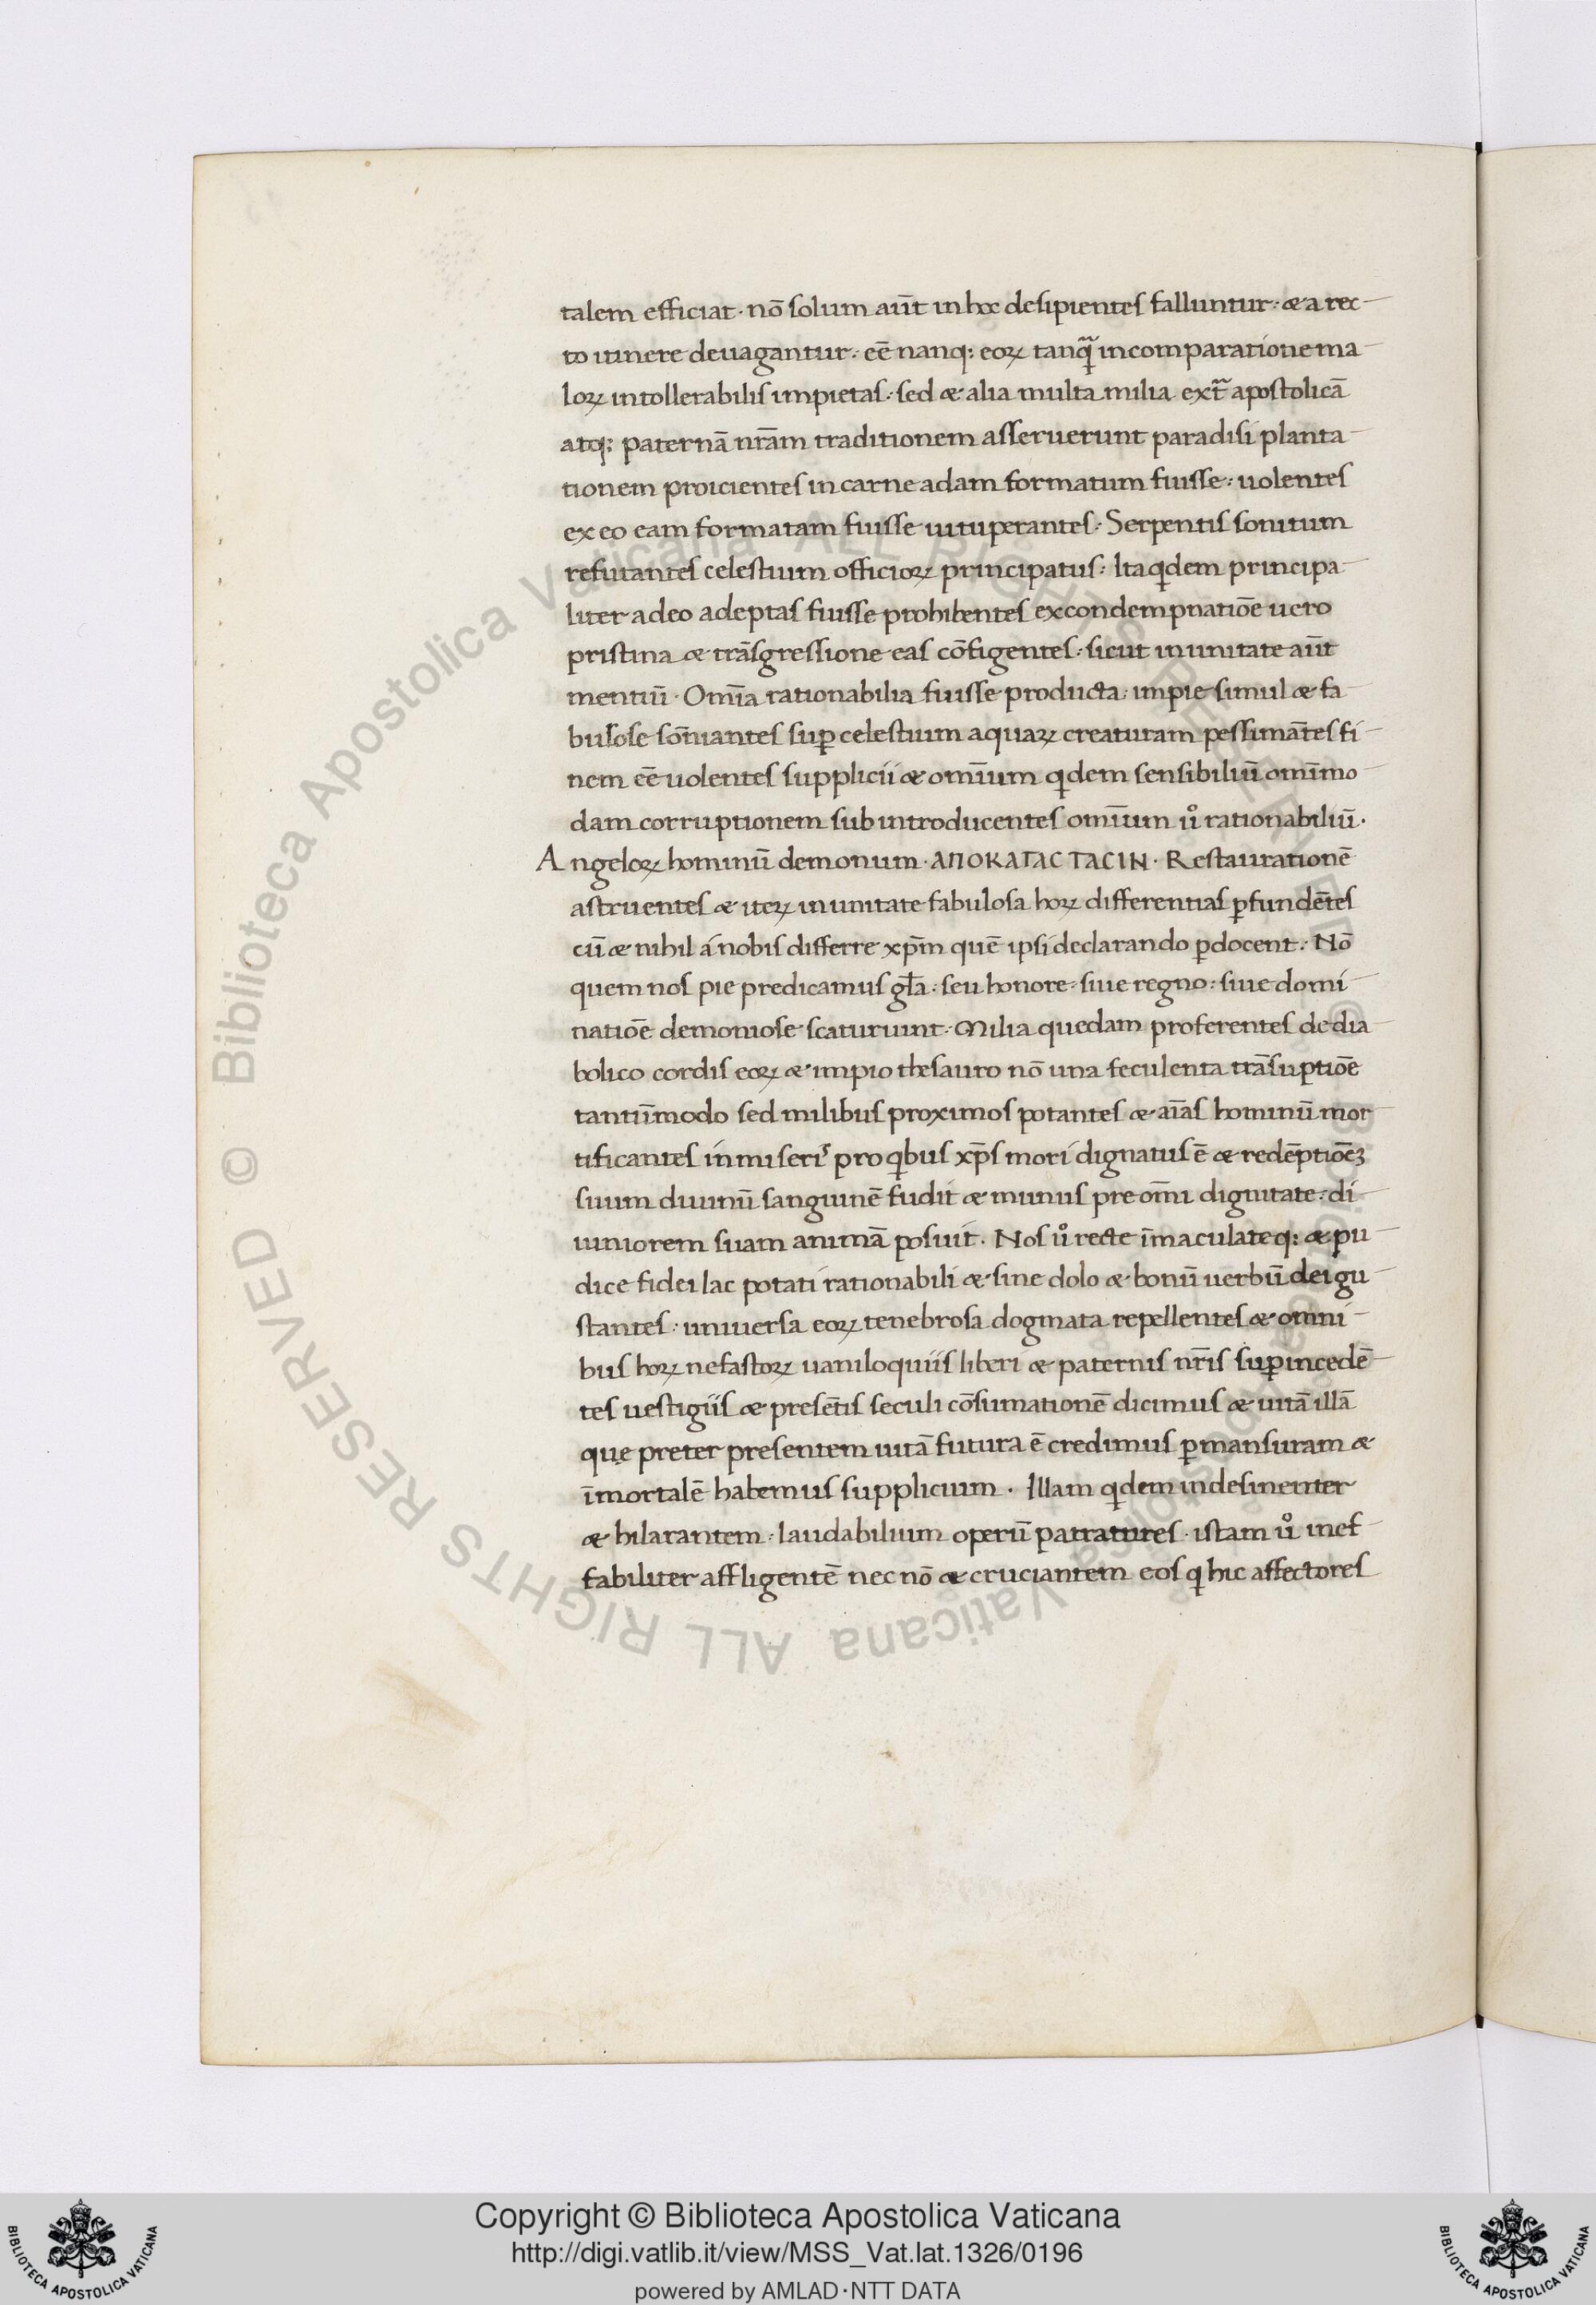 talem efficiat · nō solum aūt in hoc desipientes falluntur : æ a rec
to itinere deuagantur : eē nanq: eoꝝ tanꝗ̃ in comparatione ma
loꝝ intollerabilis impietas : sed æ alia multa milia ext̄ apostolicā
atq: paternā nr̄am traditionem asseruerunt paradisi planta
tionem proicientes in carne adam formatum fuisse : uolentes
ex eo eam formatam fuisse uituperantes · Serpentis sonitum
refutantes celestium officioꝝ principatus : Ita qͥdem principa
liter a deo adeptas fuisse prohibentes ex condempnatiōe uero
pristina æ trāsgressione eas cōfigentes : sicut in unitate aūt
mentiū · Omīa rationabilia fuisse producta : impie simul æ fa
bulose som̄iantes suꝑ celestium aquaꝝ creaturam pessimātes fi
nem eē uolentes supplicii æ omīum qͥdem sensibiliū omīmo
dam corruptionem sub introducentes omīum uͦ rationabiliū ·
Angeloꝝ hominū demonum · ΑΠΟΚΑΤΑСΤΑСΙΝ · Restaurationē
astruentes æ iteꝝ in unitate fabulosa hoꝝ differentias ꝑfundētes
cū æ nihil á nobis differre xp̄m quē ipsi declarando ꝑdocent : Nō
quem nos pie predicamus gl̄a : seu honore : siue regno : siue domi
natiōe demoniose scaturiunt · Milia quedam proferentes de dia
bolico cordis eoꝝ æ impio thesauro nō una feculenta trāsuptiōe
tantūmodo sed milibus proximos potantes æ aīas hominū mor
tificantes in miserīs pro qͥbus xp̄s mori dignatus ē æ redēptiōeꝫ
suum diuinū sanguinē fudit æ munus pre om̄i dignitate : di
uiniorem suam animā posuit · Nos uͦ recte īmaculateq: æ pu
dice fidei lac potati rationabili æ sine dolo æ bonū uerbū dei gu
stantes : uniuersa eoꝝ tenebrosa dogmata repellentes æ omni
bus hoꝝ nefastoꝝ uaniloquiis liberi æ paternis nr̄is suꝑincedē
tes uestigiis æ presētis seculi cōsumationē dicimus æ uitā illā
quę preter presentem uitā futura ē credimus ꝑmansuram æ
īmortalē habemus supplicium · Illam qͥdem indesinenter
æ hilarantem : laudabilium operū patratures · istam uͦ inef
fabiliter affligentē nec nō æ cruciantem eos qͥ hic affectores
Copyright © Biblioteca Apostolica Vaticana
http://digi.vatlib.it/view/MSS_Vat.lat.1326/0196
powered by AMLAD·NTT DATA
BIBLIOTECA APOSTOLICA VATICANA
BIBLIOTECA APOSTOLICA VATICANA
© Biblioteca Apostolica Vaticana ALL RIGHTS RESERVED
© Biblioteca Apostolica Vaticana ALL RIGHTS RESERVED